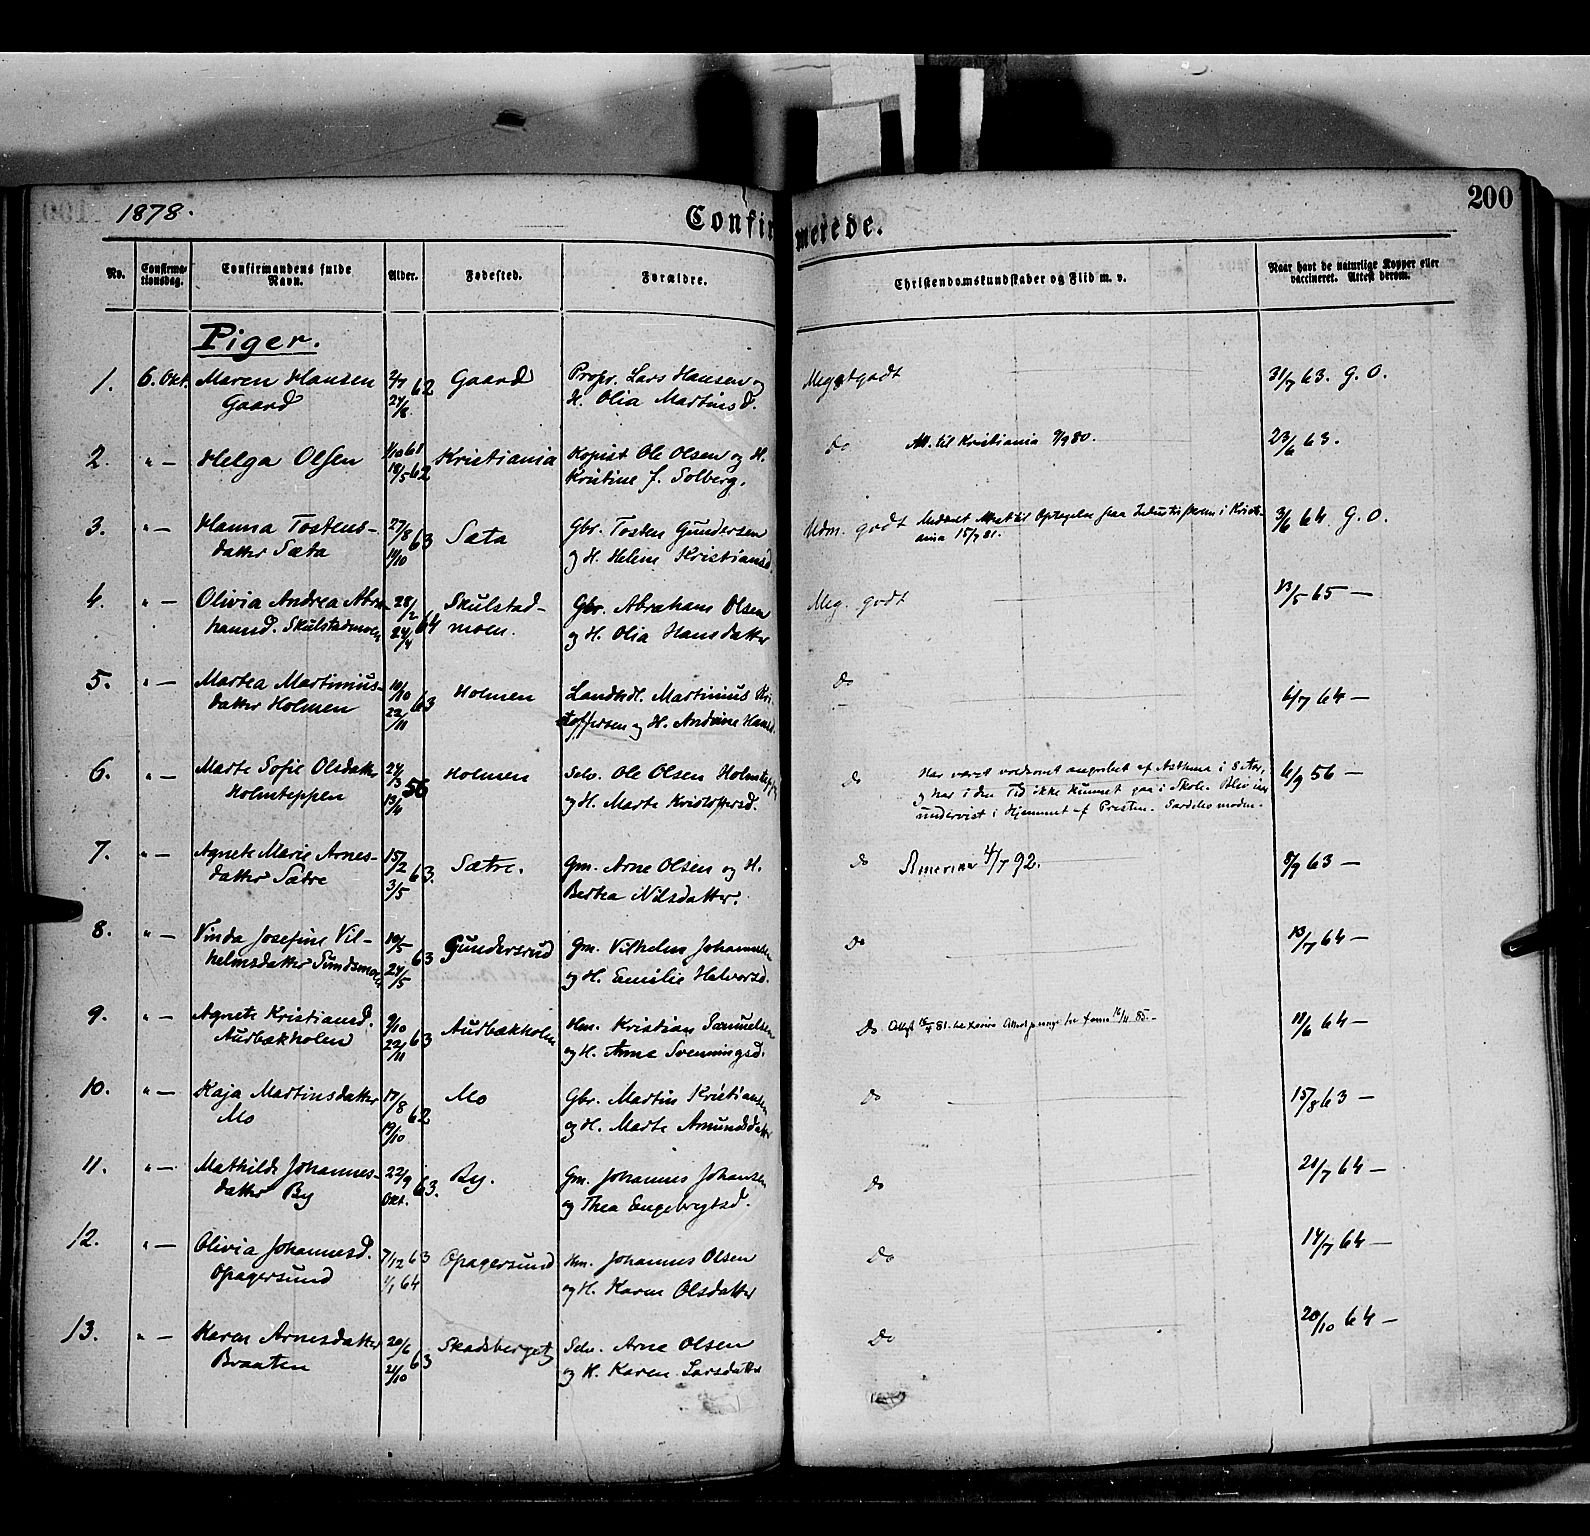 1878.
Confirmerede.
200
No.
Confirmationsdag.
Confirmandens fulde Navn.
Alder.
Fødested.
Forældre.
Christendomskundskaber og Flid m. v.
Naar havt de naturlige Kopper eller vaccineret. Attest derom.
Piger.
1. 6. Okt. Maren Hansen 2/7 62 Gaard Propr. Lars Hansen og Meget godt 31/7 63. g. O.
Gaard 24/8 H. Olia Martinsd.
2. " — Helga Olsen 1/10 61 Kristiania Kopist Ole Olsen og H. do Att. til Kristiania 9/9 80. 23/6 63.
18/5 62 Kristine f. Solberg.
3. " — Hanna Tostens- 27/8 63 Sæta Gbr. Tosten Gundersen Udm. godt Meddelt Attest til Optagelse paa Industriskolen i Kristi- 3/6 64 g. O.
datter Sæta 14/10 og H. Helene Kristiansd. ania 15/7 81.
4. " — Olivia Andrea Abra- 28/2 64 Skulstad- Gbr. Abraham Olsen Meg. godt 13/5 65 —
hamsd. Skulstadmoen 24/4 moen. og H. Olia Hansdatter
5. " — Martea Martinius- 10/10 63 Holmen Landhdl. Martinius Kri- do 6/7 64 —
datter Holmen 22/11 stoffersen og H. Andrine Hansd.
6. " — Marte Sofie Olsdatter 24/3 56 Holmen Selv. Ole Olsen Holmteppen do Har været voldsomt angrebet af Asthma i 8 Aar, 6/9 56 —
Holmteppen 13/4 og H. Marte Kristoffersd. og har i den Tid ikke kunnet gaa i Skole. Blev
undervist i Hjemmet af Presten.
7. " — Agnete Marie Arnes- 15/2 63. Sætre. Gm. Arne Olsen og H. do Amerika 4/7 92. 8/9 63 —
datter Sætre 3/5 Bertea Nilsdatter.
8. " — Vinda Josefine Vil- 10/5 63 Gundersrud Gm. Vilhelm Johannesen do 10/7 64 —
helmsdatter Sundsmoen 24/5 og H. Emilie Halvorsd.
9. " — Agnete Kristiansd. 9/10 63 Audbækholen Hm. Kristian Samuelsen do 11/6 64 —
Audbækholen 22/11 og H. Anne Svenningsd.
10. " — Kaja Martinsdatter 17/8 62 Mo Gbr. Martin Kristiansen do 15/8 63 —
Mo 19/10 og H. Marte Amundsdatter
11. " — Mathilde Johannes- 22/9 63. By. Gm. Johannes Johansen do 21/7 64 —
datter By Okt. og Thea Engebregtsd.
12. " — Olivia Johannesd. 7/12 63 Opagersund Hm. Johannes Olsen do 14/7 64 —
Opagersund 1/1 64 og H. Karen Olsdatter
13. " — Karen Arnesdatter 20/6 63 Skadsberget Selv. Arne Olsen do 20/10 64 —
Braaten 21/10 og H. Karen Larsdatter